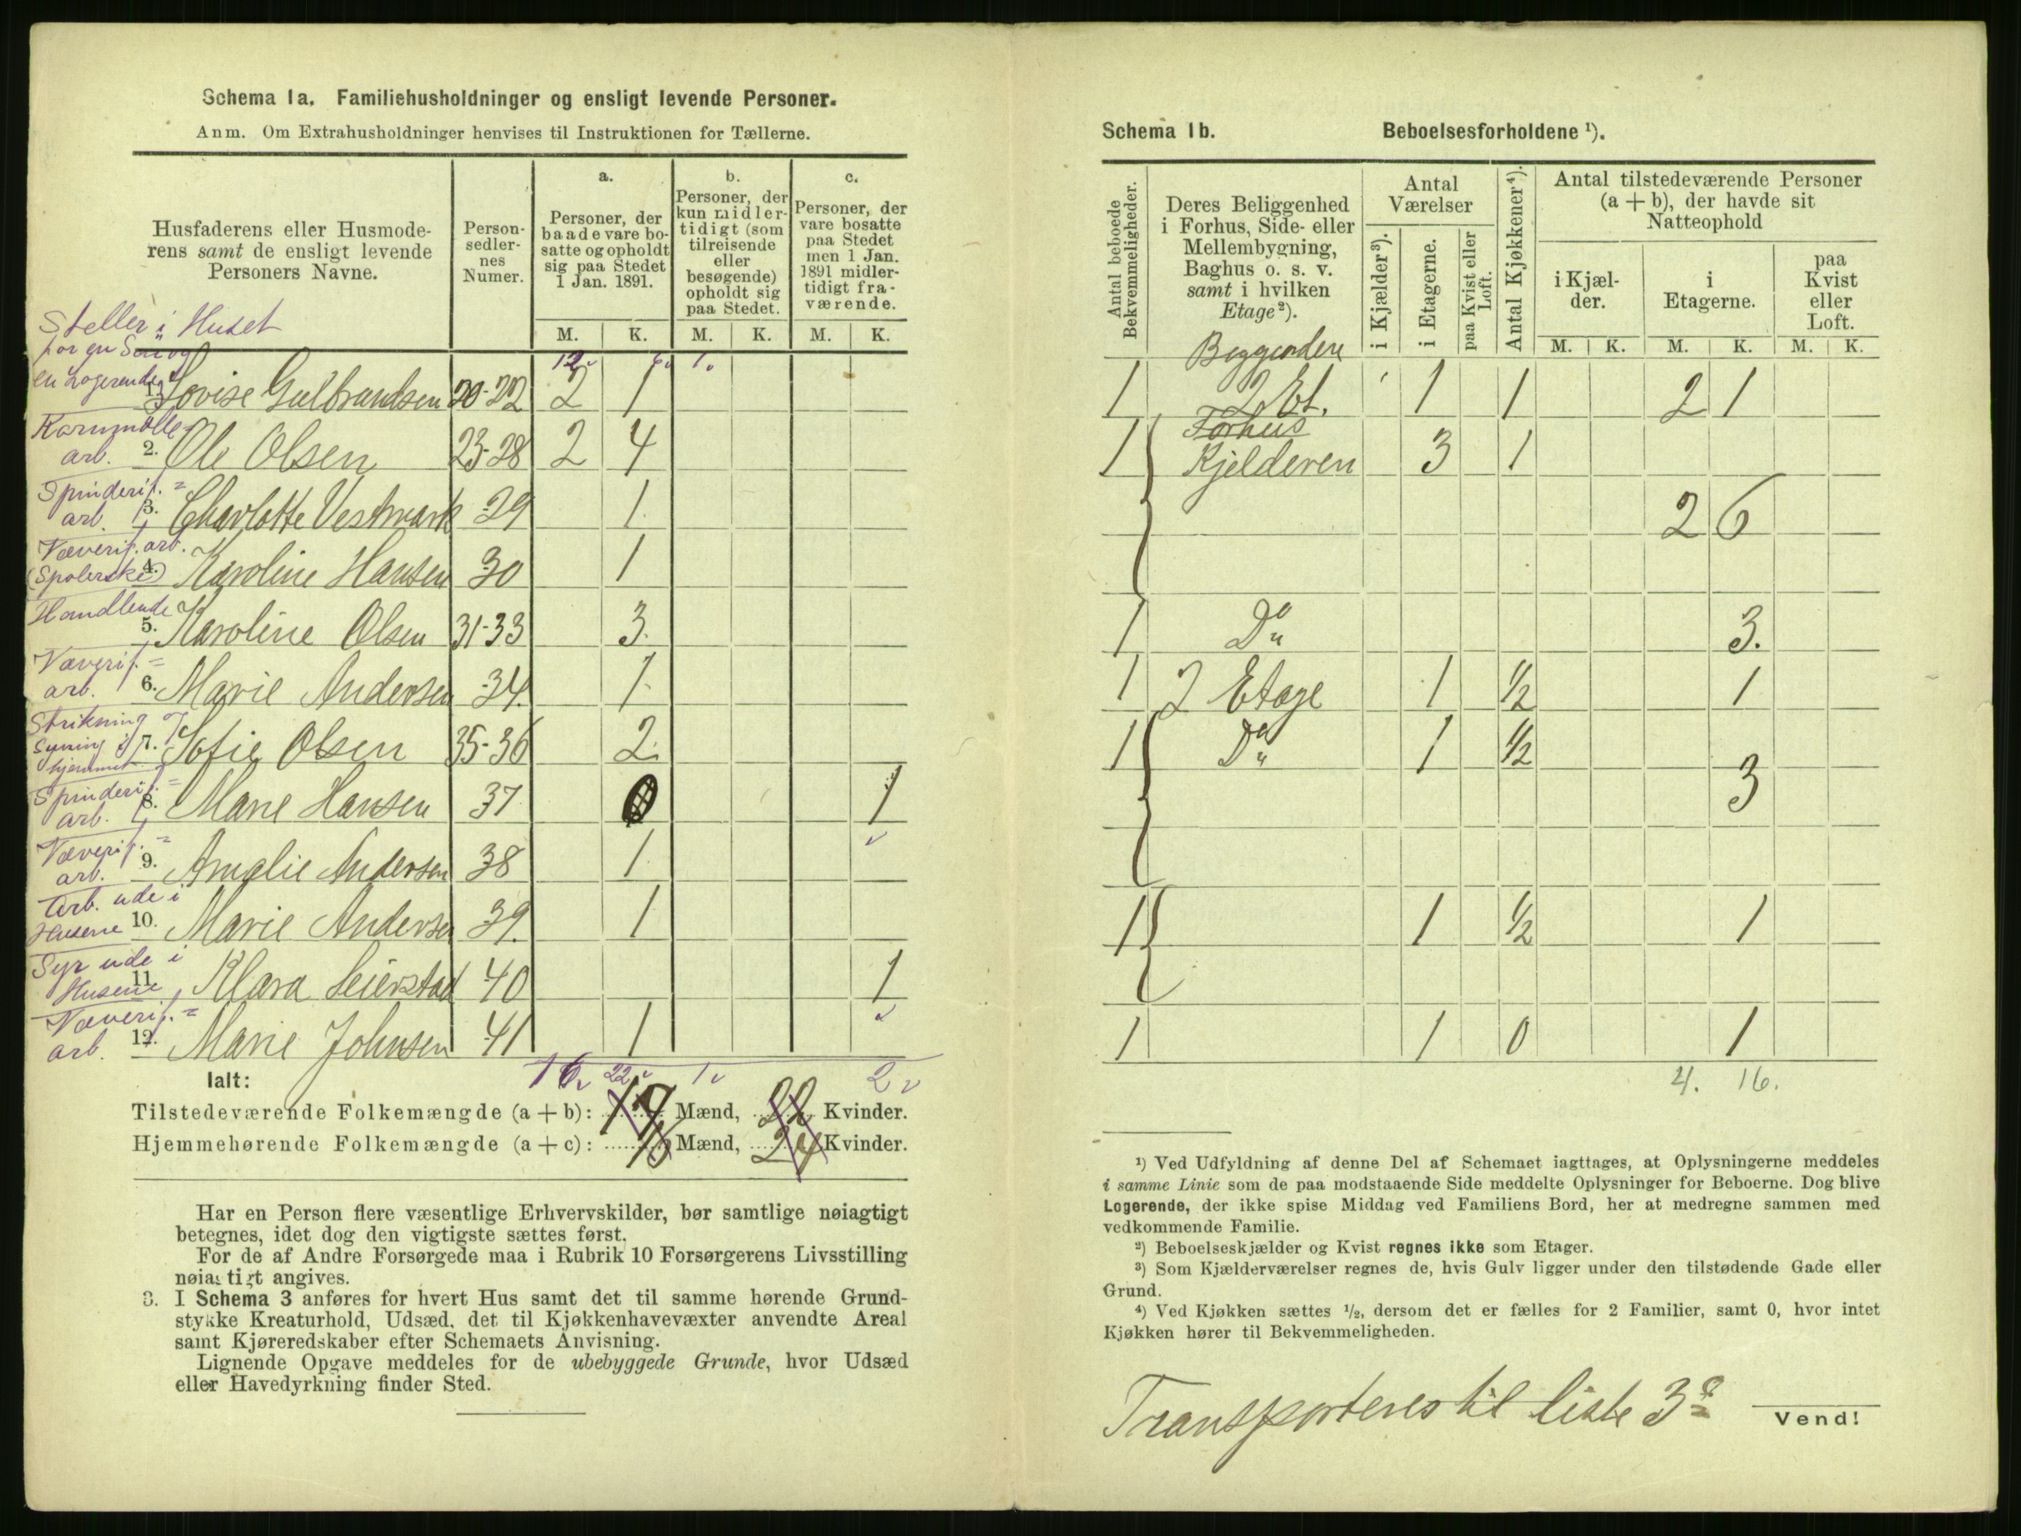 Schema 1a. Familiehusholdninger og ensligt levende Personer.
Anm. Om Extrahusholdninger henvises til Instruktionen for Tællerne.
Husfaderens eller Husmode-
rens samt de ensligt levende
Personers Navne.
Person-
sedler-
nes
Numer.
a.
Personer, der
baade vare bo-
satte og opholdt
sig paa Stedet
1 Jan. 1891.
b.
Personer, der
kun midler-
tidigt (som
tilreisende
eller
besøgende)
opholdt sig
paa Stedet.
c.
Personer, der
vare bosatte
paa Stedet
men 1 Jan.
1891 midler-
tidigt fra-
værende.
M. K. M. K. M. K.
Steller i Huset
for en Søn og
en Logerende
12 6 1
1. Lovise Gulbrandsen 20-22 2 1
Kornmølle
arb. 2. Ole Olsen 23-28 2 4
Spinderif.=
arb. 3. Charlotte Vestmark 29 1
Væverif. arb.
(Spolerske) 4. Karoline Hansen 30 1
Handlende
5. Karoline Olsen 31-33 3.
Væverif.=
arb. 6. Marie Andersen 34. 1
Strikning
Syning i 7. Sofie Olsen 35-36 2
hjemmet
Spinderif.=
arb. 8. Marie Hansen 37 1
Væverif.=
arb. 9. Amalie Andersen 38 1
Arb. ude i
Husene 10. Marie Andersen 39. 1
Syr ude i
Husene 11. Klara Seierstad 40 1
Væverif.=
arb. 12. Marie Johnsen 41 1
Ialt: 16 22 1 2
Tilstedeværende Folkemængde (a + b): 17 Mænd, 22 Kvinder.
Hjemmehørende Folkemængde (a + c): 16 Mænd, 24 Kvinder.
Har en Person flere væsentlige Erhvervskilder, bør samtlige nøiagtigt
betegnes, idet dog den vigtigste sættes først.
For de af Andre Forsørgede maa i Rubrik 10 Forsørgerens Livsstilling
nøiagtigt angives.
3. I Schema 3 anføres for hvert Hus samt det til samme hørende Grund-
stykke Kreaturhold, Udsæd, det til Kjøkkenhavevæxter anvendte Areal
samt Kjøreredskaber efter Schemaets Anvisning.
Lignende Opgave meddeles for de ubebyggede Grunde, hvor Udsæd
eller Havedyrkning finder Sted.
Schema 1b. Beboelsesforholdene ¹).
Antal beboede
Bekvemmeligheder.
Deres Beliggenhed
i Forhus, Side- eller
Mellembygning,
Baghus o. s. v.
samt i hvilken
Etage²).
Antal
Værelser
i Kjælder³).
i Etagerne.
paa Kvist eller
Loft.
Antal Kjøkkener⁴).
Antal tilstedeværende Personer
(a + b), der havde sit
Natteophold
i Kjæl-
der.
i
Etagerne.
paa
Kvist
eller
Loft.
M. K. M. K. M. K.
1 2 Et. 1 1 2 1
Forhus
1 Kjelderen 3 1
2 6
1 Do 3.
1 2 Etage 1 1/2 1
1 Do 1 1/2
3
1 1 1/2 1
1 1 0 1
4. 16.
¹) Ved Udfyldning af denne Del af Schemaet iagttages, at Oplysningerne meddeles
i samme Linie som de paa modstaaende Side meddelte Oplysninger for Beboerne. Dog blive
Logerende, der ikke spise Middag ved Familiens Bord, her at medregne sammen med
vedkommende Familie.
²) Beboelseskjælder og Kvist regnes ikke som Etager.
³) Som Kjælderværelser regnes de, hvis Gulv ligger under den tilstødende Gade eller
Grund.
⁴) Ved Kjøkken sættes ½, dersom det er fælles for 2 Familier, samt 0, hvor intet
Kjøkken hører til Bekvemmeligheden.
Transporteres til liste 3
Vend!